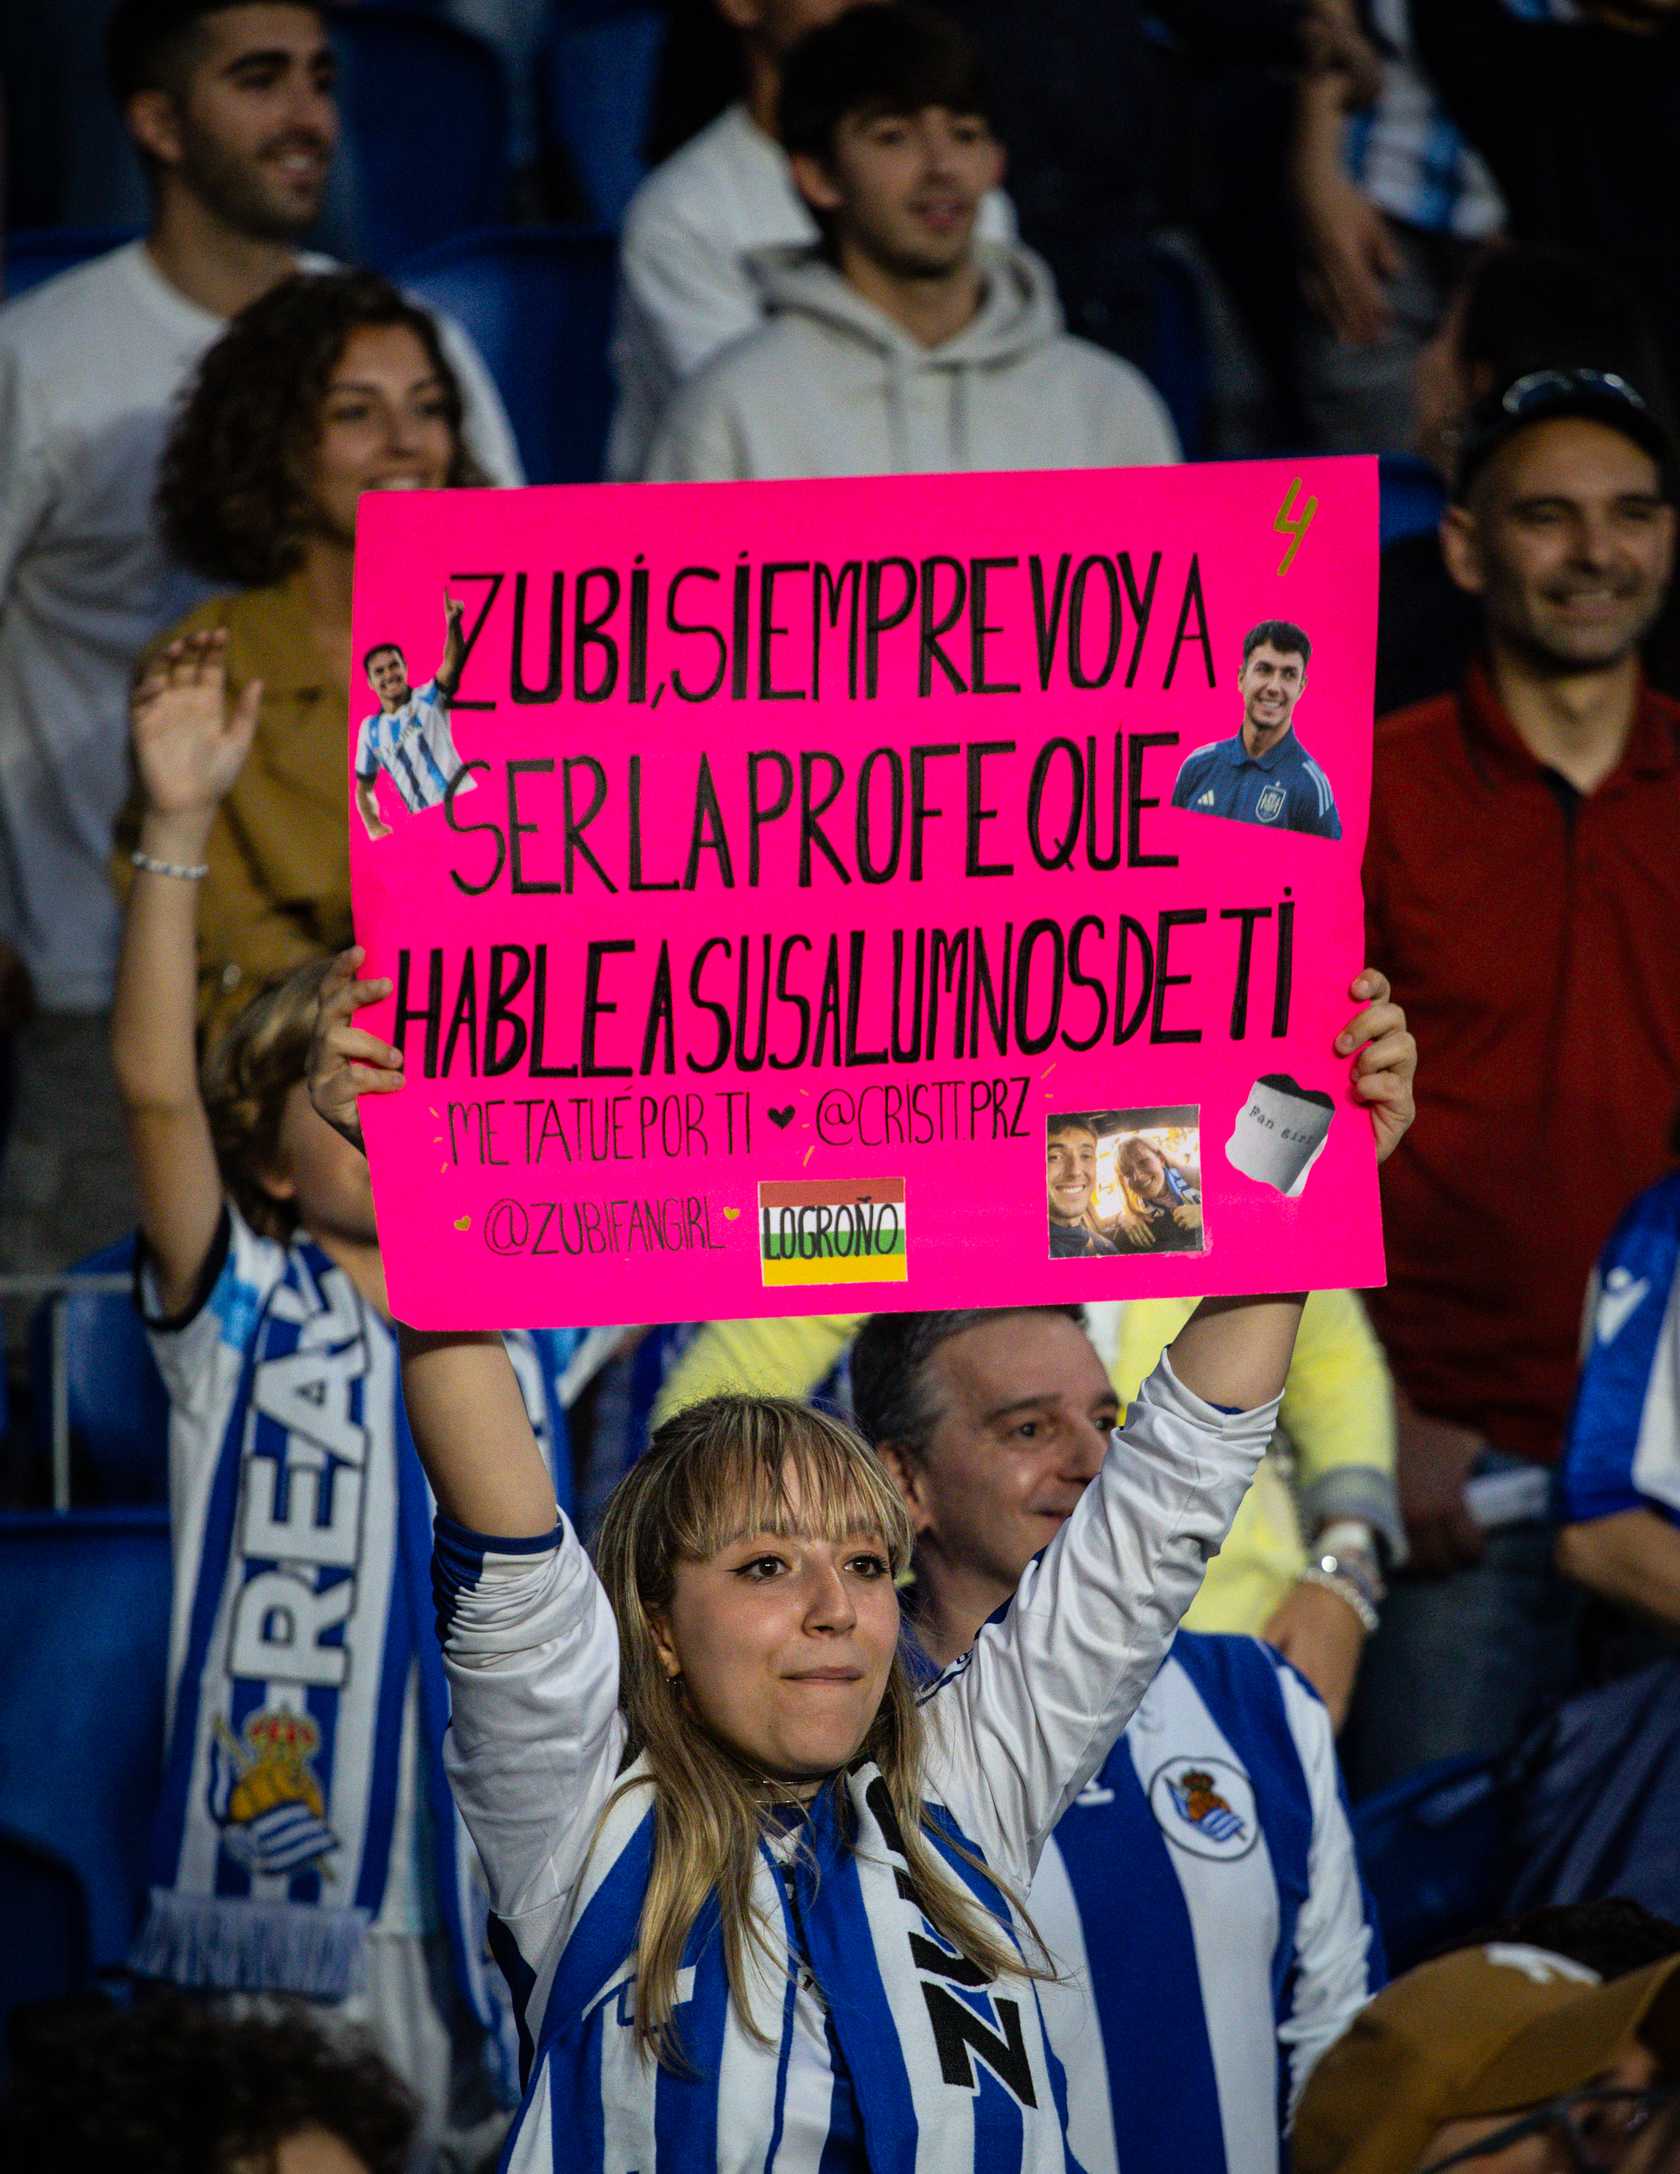 4
ZUBI, SIEMPRE VOY A
SER LA PROFE QUE
HABLE A SUS ALUMNOS DE TI
ME TATUÉ POR TI ♥ @CRISTTPRZ
@ZUBIFANGIRL
LOGROÑO
Fan girl
REAL